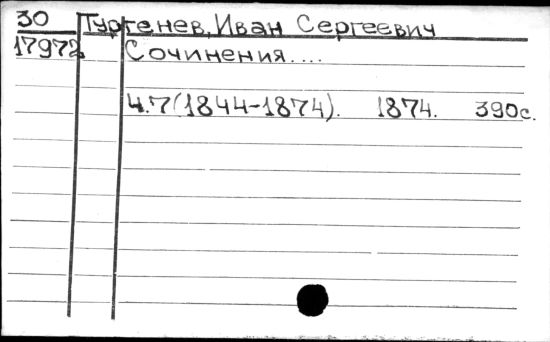 30 Тургенев, Иван Сергеевич
17972 Сочинения....
Ч.7(1844-1874). 1874. 390с.